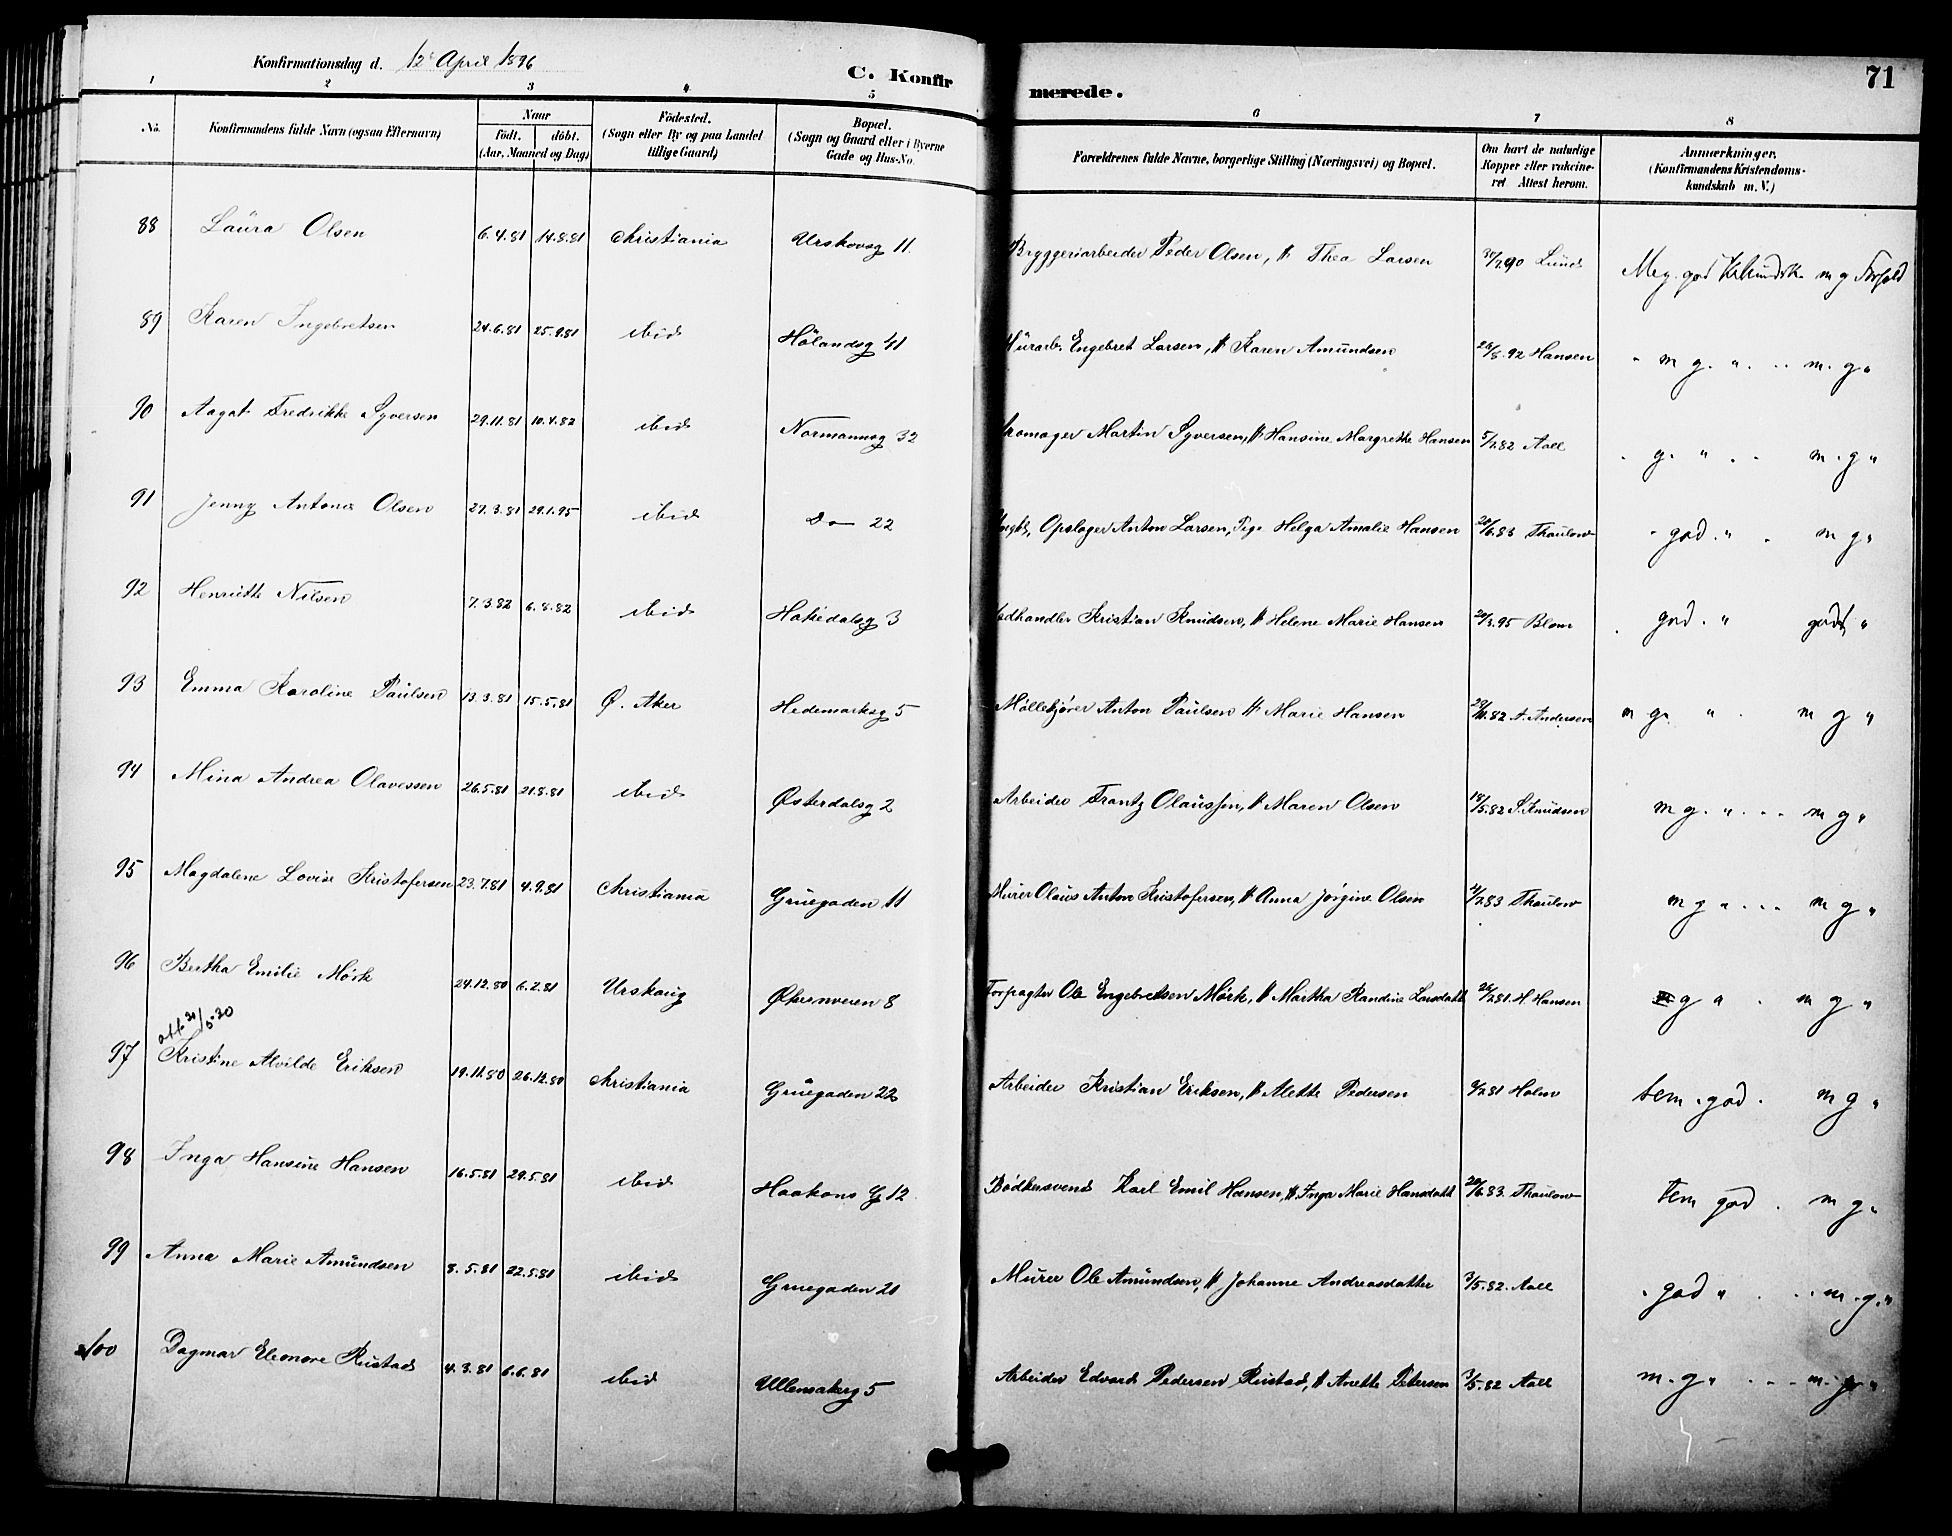 Konfirmationsdag d. 12 April 1896
C. Konfirmerede. 71
1 2 3 4 5 6 7 8
No. Konfirmandens fulde Navn (ogsaa Efternavn) Naar födt. döbt. (Aar, Maaned og Dag) Födested. (Sogn eller By og paa Landet tillige Gaard) Bopæl. (Sogn og Gaard eller i Byerne Gade og Hus-No. Forældrenes fulde Navne, borgerlige Stilling (Næringsvei) og Bopæl. Om havt de naturlige Kopper eller vakcineret Attest herom. Anmærkninger. (Konfirmandens Kristendomskundskab m. V.)
88 Laura Olsen 6.4.81 14.8.81 Christiania Urskovsg 11 Bryggeriarbeider Peder Olsen, H. Thea Larsen 90 Lund Meg. god m g Forhold
89 Karen Ingebretsen 24.6.81 25.9.81 ibid Hölandsg 41 Murarb. Engebret Larsen, H Karen Amundsen 28/8.92 Hansen " m g. " .. m. g "
90 Aagot Fredrikke Syversen 29.11.81 10.4.82 ibid Normannsg 32 Martin Syversen, H Hansine Margrethe Hansen 5/7.82 Aall " g. " . . m. g "
91 Jenny Antonie Olsen 27.3.81 29.1.95 ibid Do 22 Opslager Anton Larsen, Pige Helga Amalie Hansen 20/6.83 Thaulow " god. " . m g "
92 Henriette Nilsen 7.3.82 6.8.82 ibid Hakedalsg 3 Vedhandler Kristian Knudsen, H Helene Marie Hansen 20/3.95 Blom . god. " godt "
93 Emma Karoline Paulsen 13.3.81 15.5.81 Ø. Aker Hedemarksg 5 Møllekjører Anton Paulsen H Marie Hansen 82 A. Andersen m g. " . m g "
94 Mina Andrea Olavessen 26.5.81 21.8.81 ibid Østerdalsg 2 Arbeider Frantz Olaussen, H Maren Olsen 18/5.82 S. Knudsen m g. " ... m g "
95 Magdalene Lovise Kristofersen 23.7.81 4.9.81 Christiania Gruegaden 11 Murer Olaus Anton Kristofersen, H Anna Jørgine Olsen 83 Thaulow m g " ... m g "
96 Bertha Emilie Mørk 24.12.80 6.2.81 Urskoug Økernveien 8 Forpagter Ole Engebretsen Mörk, H Martha Randine Larsdatt 26/7.81 H. Hansen g " . m g "
att. 20
97 Kristine Alvilde Eriksen 19.11.80 26.12.80 Christiania Gruegaden 22 Arbeider Kristian Eriksen, H Mette Pedersen 81 Holm tem. god. m g "
98 Inga Hansine Hansen 16.5.81 29.5.81 ibid Haakons G 12 Bødkersvend Karl Emil Hansen, H. Inga Marie Hansdatt 20/6.83. Thaulow tem god . m g "
99 Anna Marie Amundsen 8.5.81 22.5.81 ibid Gruegaden 20 Murer Ole Amundsen, H Johanne Andreasdatter 3/5.82. Aall " god " . .. m. g. "
100 Dagmar Eleonore Rustad 4.3.81 6.6.81 ibid Ullensakerg 5 Arbeider Edvard Pedersen Rustad, H Anette Petersen 3/5.82 Aall m. g " ... m. g "